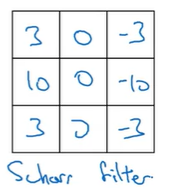 3 0 -3
10 0 -10
3 0 -3
Scharr filter